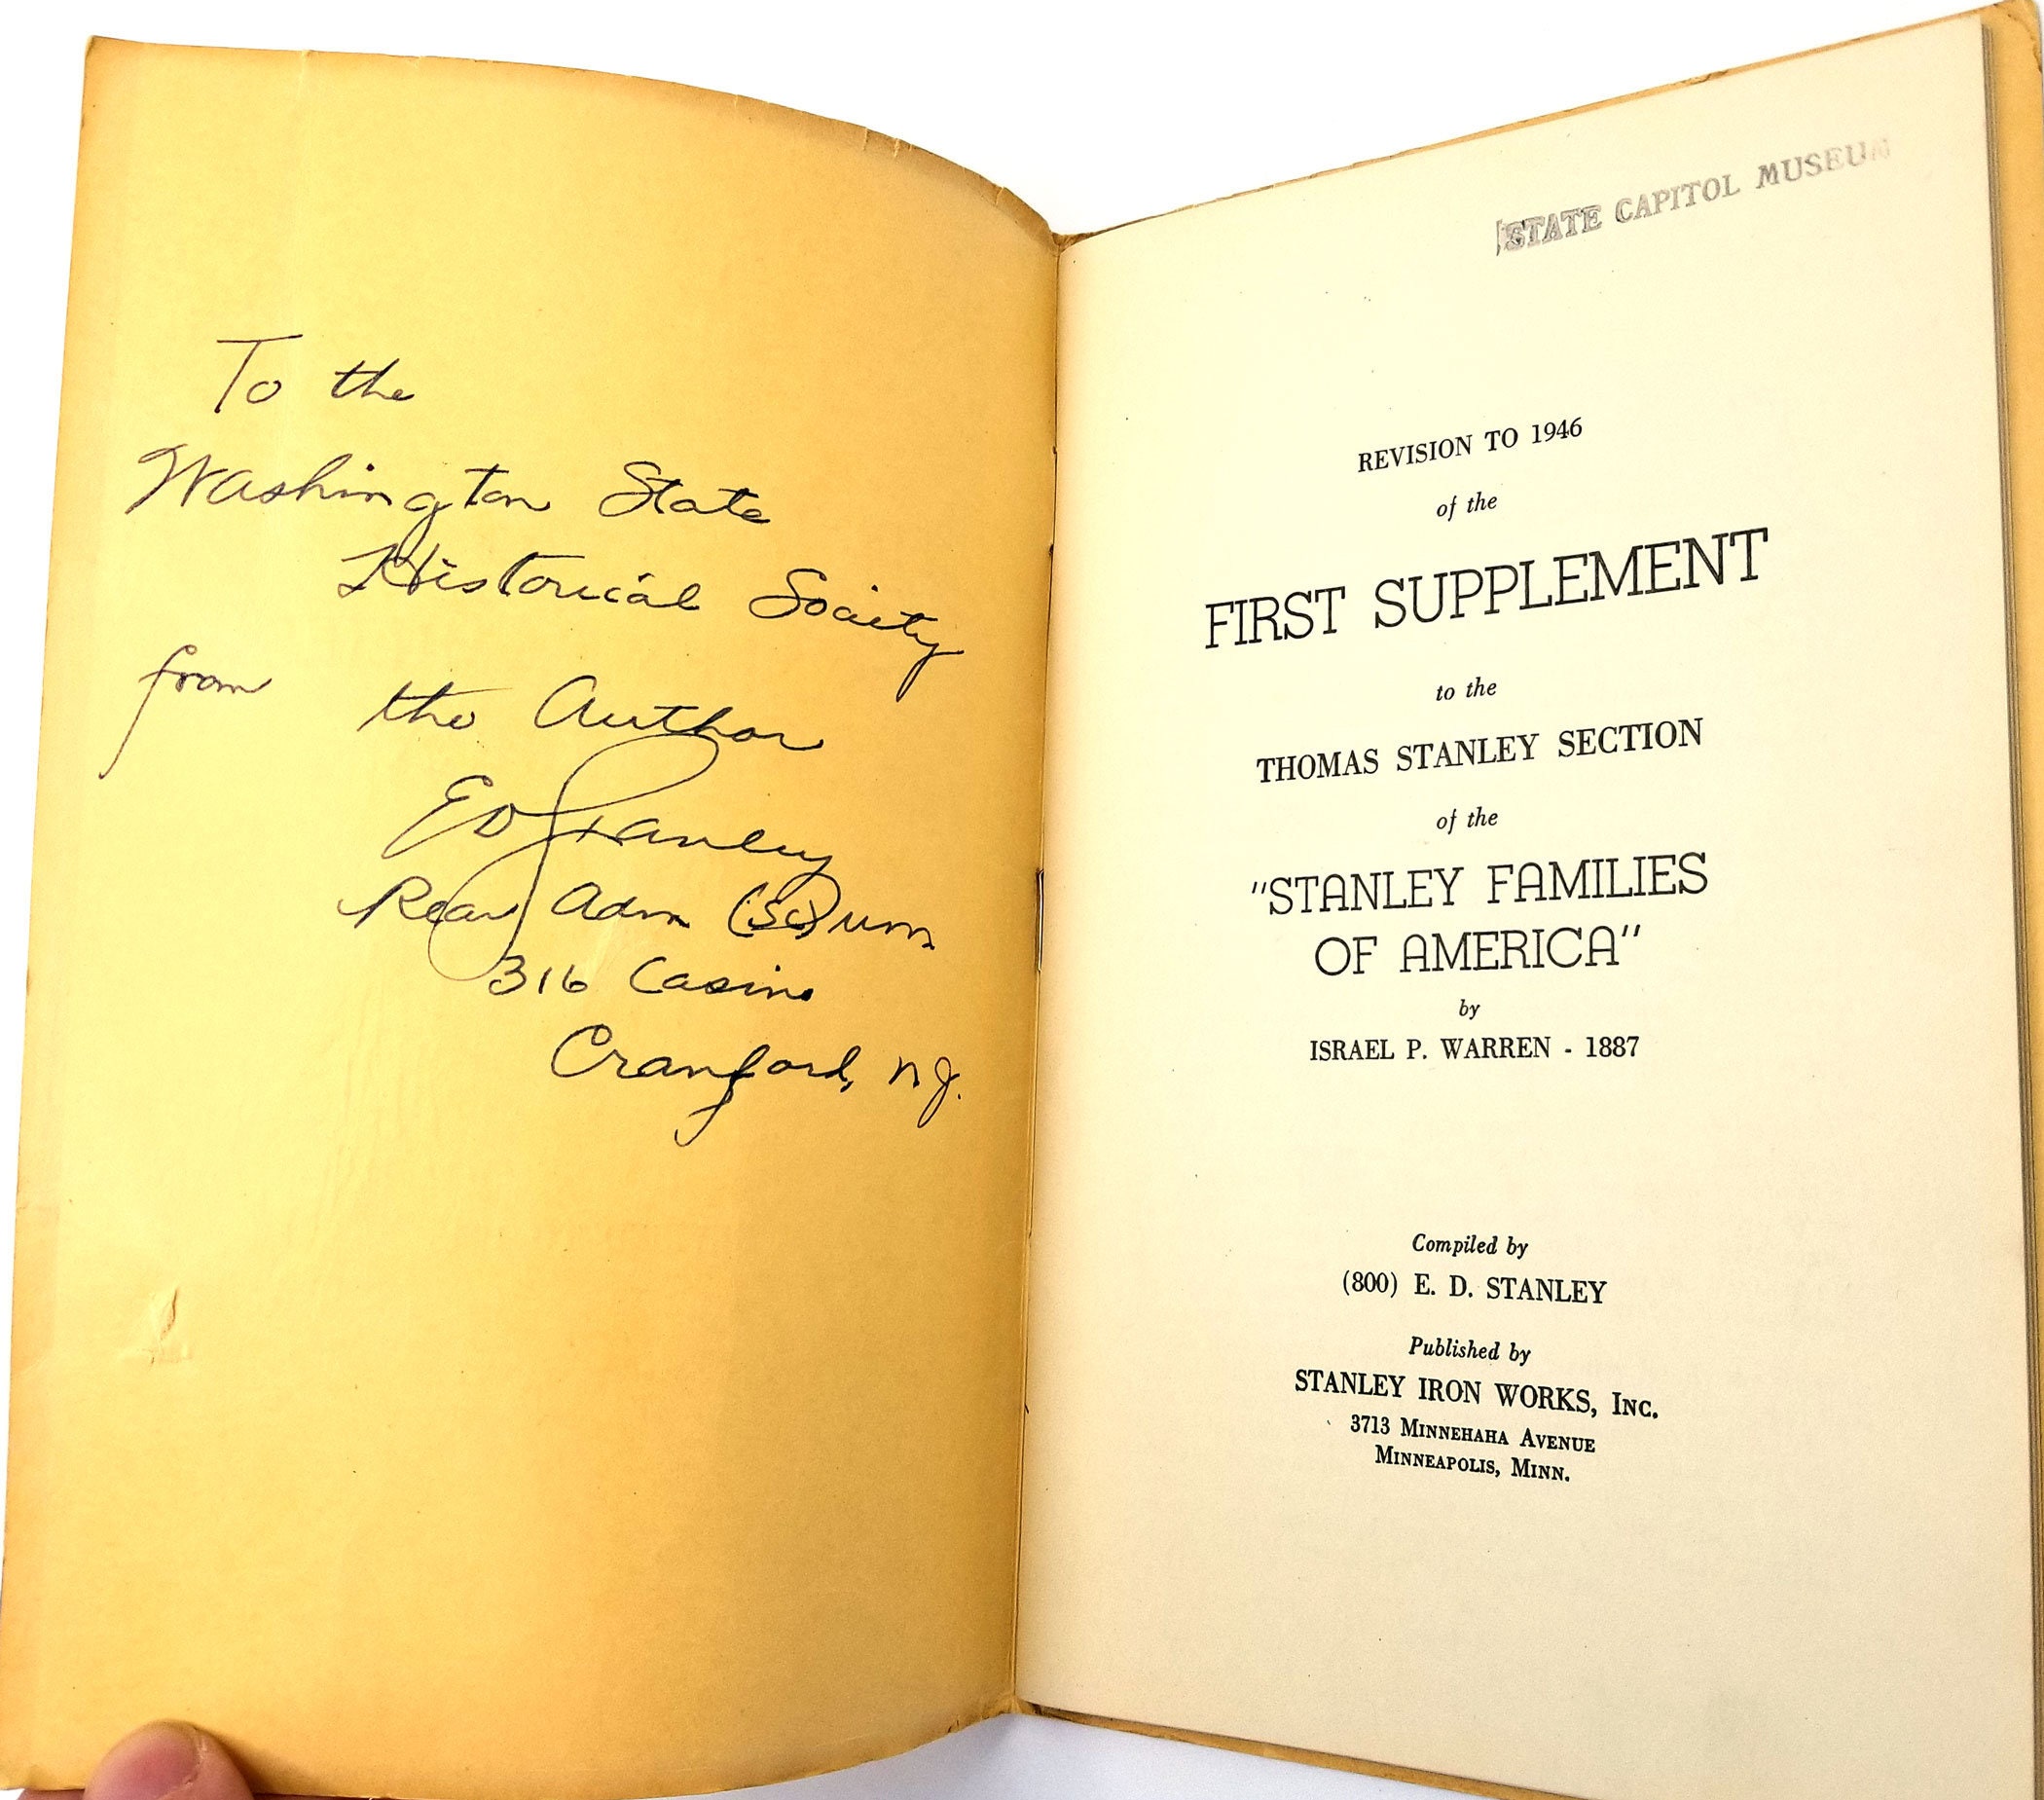 To the
Washington State
Historical Society
from the Author
ED Stanley
Rear Adm (SC) USN
316 Casino
Cranford, N.J.
STATE CAPITOL MUSEUM
REVISION TO 1946
of the
FIRST SUPPLEMENT
to the
THOMAS STANLEY SECTION
of the
"STANLEY FAMILIES
OF AMERICA"
by
ISRAEL P. WARREN - 1887
Compiled by
(800) E. D. STANLEY
Published by
STANLEY IRON WORKS, INC.
3713 MINNEHAHA AVENUE
MINNEAPOLIS, MINN.